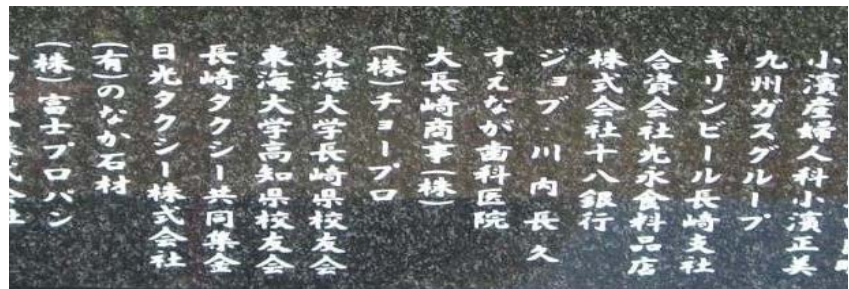 小濱産婦人科小濱正美
九州ガスグループ
キリンビール長崎支社
合資会社光永食料品店
株式会社十八銀行
ジョブ 川内長久
すえなが歯科医院
大長崎商事(株)
(株)チョープロ
東海大学長崎県校友会
東海大学高知県校友会
長崎タクシー共同集金
日光タクシー株式会社
(有)のなか石材
(株)富士プロパン